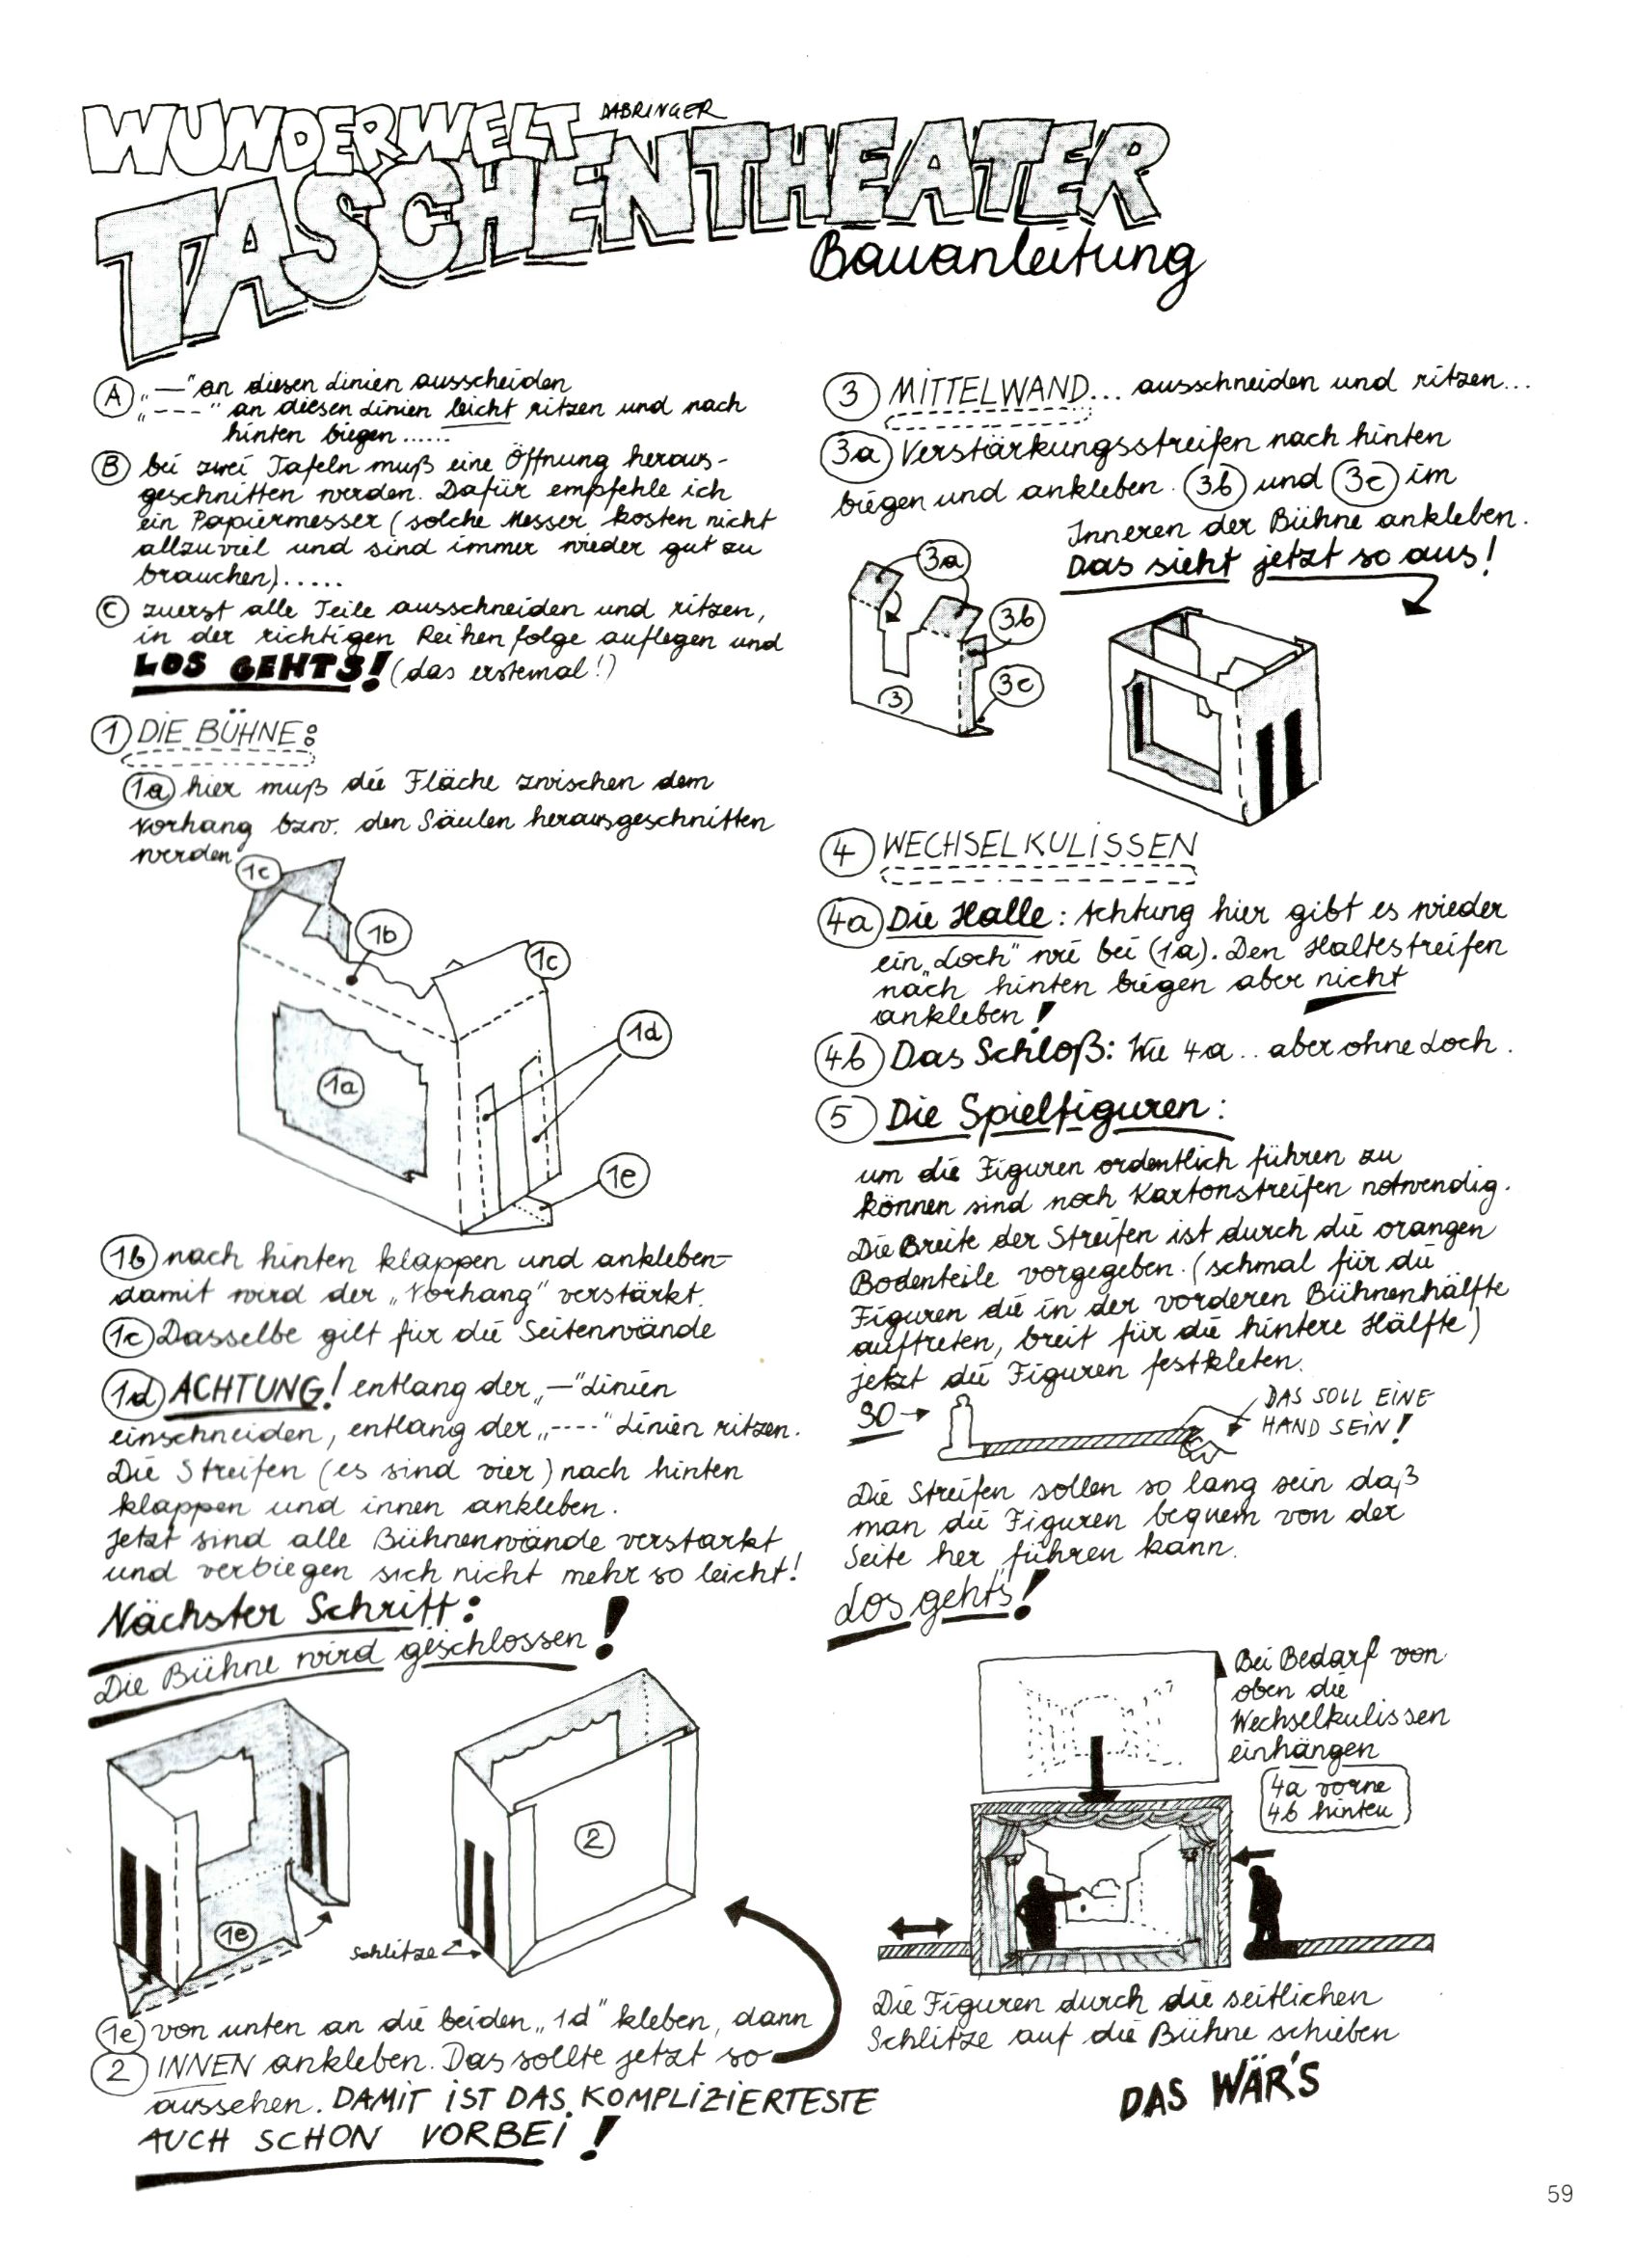 WUNDERWELT DABRINGER
TASCHENTHEATER
Bauanleitung
A „—" an diesen Linien ausscheiden
„---" an diesen Linien leicht ritzen und nach
hinten biegen......
B bei zwei Tafeln muß eine Öffnung heraus-
geschnitten werden. Dafür empfehle ich
ein Papiermesser (solche Messer kosten nicht
allzuviel und sind immer wieder gut zu
brauchen).....
C zuerst alle Teile ausschneiden und ritzen,
in der richtigen Reihenfolge auflegen und
LOS GEHTS! (das erstemal!)
1 DIE BÜHNE:
1a hier muß die Fläche zwischen dem
Vorhang bzw. den Säulen herausgeschnitten
werden.
1c
1b
1c
1d
1a
1e
1b nach hinten klappen und ankleben-
damit wird der „Vorhang" verstärkt.
1c Dasselbe gilt für die Seitenwände
1d ACHTUNG! entlang der „—" Linien
einschneiden, entlang der „----" Linien ritzen.
Die Streifen (es sind vier) nach hinten
klappen und innen ankleben.
Jetzt sind alle Bühnenwände verstarkt
und verbiegen sich nicht mehr so leicht!
Nächster Schritt:
Die Bühne wird geschlossen!
2
1e
Schlitze
1e von unten an die beiden „1d" kleben, dann
2 INNEN ankleben. Das sollte jetzt so
aussehen. DAMIT IST DAS KOMPLIZIERTESTE
AUCH SCHON VORBEI!
3 MITTELWAND... ausschneiden und ritzen...
3a Verstärkungsstreifen nach hinten
biegen und ankleben. 3b und 3c im
Inneren der Bühne ankleben.
Das sieht jetzt so aus!
3a
3b
3c
3
4 WECHSELKULISSEN
4a Die Halle: Achtung hier gibt es wieder
ein „Loch" wie bei (1a). Den Haltestreifen
nach hinten biegen aber nicht
ankleben!
4b Das Schloß: Wie 4a.. aber ohne Loch.
5 Die Spielfiguren:
um die Figuren ordentlich führen zu
können sind noch Kartonstreifen notwendig.
Die Breite der Streifen ist durch die orangen
Bodenteile vorgegeben. (schmal für die
Figuren die in der vorderen Bühnenhälfte
auftreten, breit für die hintere Hälfte)
jetzt die Figuren festkleben.
SO→
DAS SOLL EINE
HAND SEIN!
Die Streifen sollen so lang sein daß
man die Figuren bequem von der
Seite her führen kann.
Los geht's!
Bei Bedarf von
oben die
Wechselkulissen
einhängen
4a vorne
4b hinten
Die Figuren durch die seitlichen
Schlitze auf die Bühne schieben
DAS WÄR'S
59